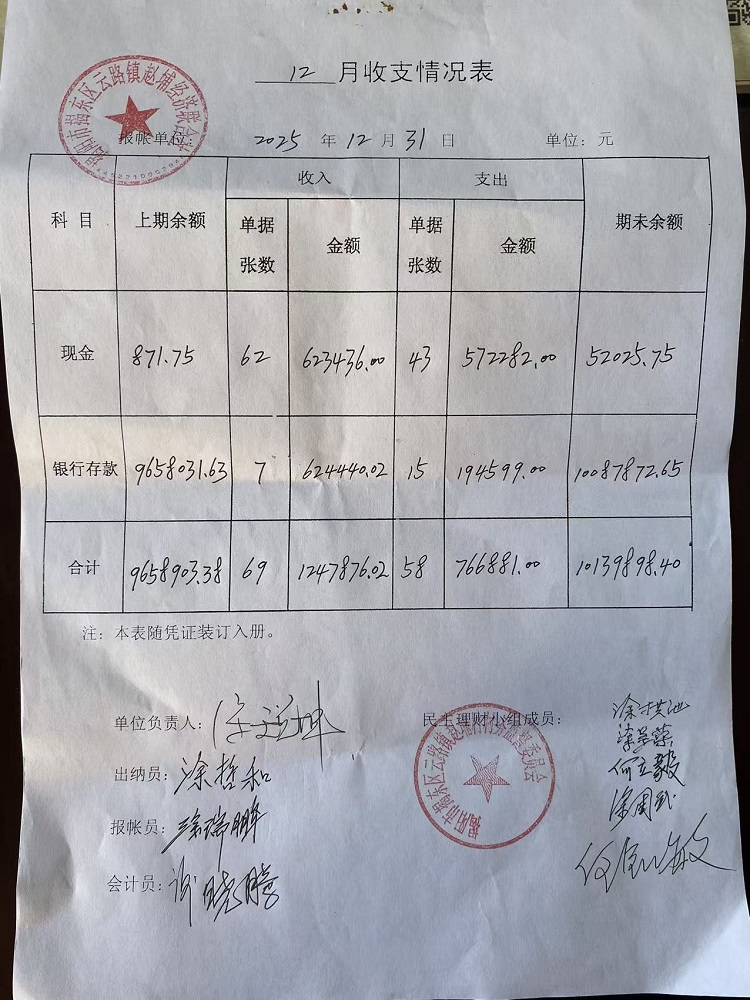 12 月收支情况表
揭阳市揭东区云路镇赵埔经济联合社
报帐单位： 2025 年 12 月 31 日 单位：元
科目 上期余额 收入 支出 期未余额
单据张数 金额 单据张数 金额
现金 871.75 62 623436.00 43 572282.00 52025.75
银行存款 9658031.63 7 624440.02 15 194599.00 10087872.65
合计 9658903.38 69 1247876.02 58 766881.00 10139898.40
注：本表随凭证装订入册。
单位负责人：
民主理财小组成员：
出纳员：涂哲和
何立毅
报帐员：涂瑞鹏
会计员：
揭阳市揭东区云路镇赵埔村村务监督委员会